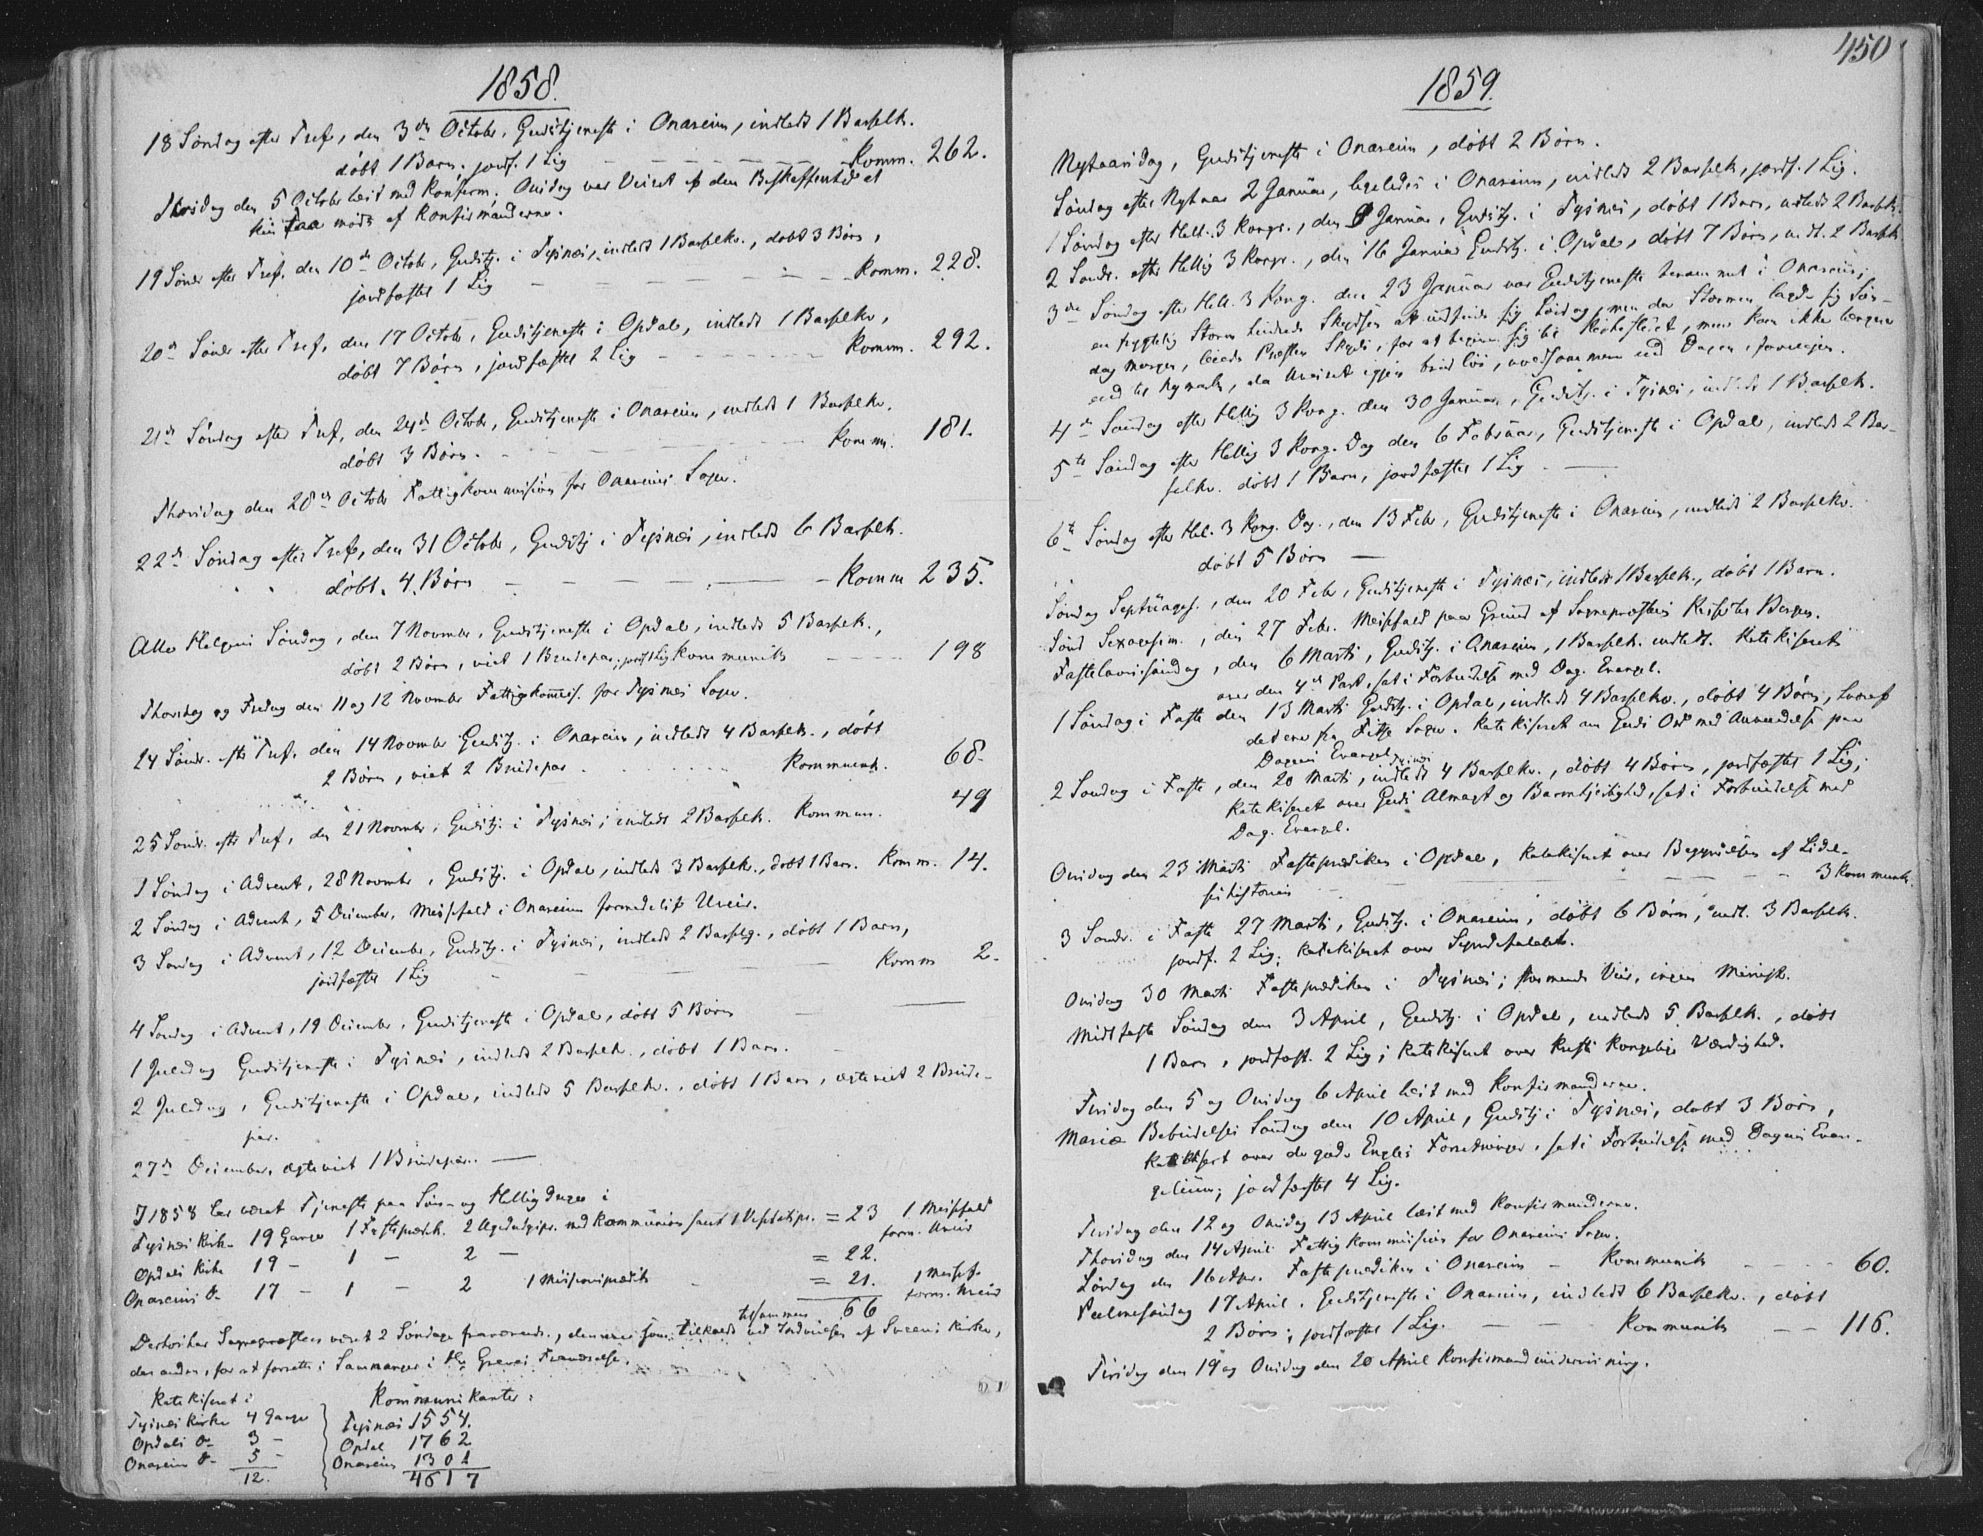 1858.
18 Søndag efter Tref, den 3de Octobr, Gudstjeneste i Onareim, indledt 1 Barselk.
døbt 1 Barn, jordf. 1 Lig — — — — — Komm. 262.
Thirsdag den 5 Octobr læst med Konfirm; Onsdag var Veiret af den Beskaffenhed at
kun faa mødte af Konfirmanderne.
19 Sønd. efter Tref. den 10de Octobr, Gudstj. i Tysnæs, indledt 1 Barselkv., døbt 3 Børn,
jordfæstet 1 Lig — — — — — Komm. 228.
20de Sønd. efter Tref, den 17 Octobr, Gudstjeneste i Opdal, indledt 1 Barselkv,
døbt 7 Børn, jordfæstet 2 Lig — — — — Komm. 292.
21de Søndag efter Tref, den 24de Octobr, Gudstjeneste i Onareim, indledt 1 Barselkv.
døbt 3 Børn. — — — — — Komm. 181.
Thorsdag den 28de Octobr Fattigkommission for Onareims Sogn.
22de Søndag efter Tref, den 31 Octobr, Gudstj i Tysnæs, indledt 6 Barselk.
døbt 4 Børn — — — — — Komm 235.
Alle Helgens Søndag, den 7 Novembr, Gudstjeneste i Opdal, indledt 5 Barselk.,
døbt 2 Børn, viet 1 Brudepar; jordf 1 Lig Kommunik — — 198
Thorsdag og Fredag den 11 og 12 Novembr Fattigkommis. for Tysnæs Sogn.
24 Sønd. efter Tref. den 14 Novembr Gudstj. i Onareim, indledt 4 Barselk., døbt
2 Børn, viet 2 Brudepar . . . . . . Kommunik. 68.
25 Sønd. efter Tref, den 21 Novembr, Gudstj. i Tysnæs, indledt 2 Barselk. Kommun. 49
1 Søndag i Advent, 28 Novembr, Gudstj. i Opdal, indledt 3 Barselkv., døbt 1 Barn. Komm. 14.
2 Søndag i Advent, 5 December, Messefald i Onareim formedelst Uveir.
3 Søndag i Advent, 12 December, Gudstj. i Tysnæs, indledt 2 Barselq., døbt 1 Barn,
jordfæstet 1 Lig — — — — — Komm 2.
4 Søndag i Advent, 19 December, Gudstjeneste i Opdal, døbt 5 Børn —
1 Juledag Gudstjeneste i Tysnæs, indledt 2 Barselk., døbt 1 Barn. —
2 Juledag, Gudstjeneste i Opdal, indledt 5 Barselkv., døbt 1 Barn, ægteviet 2 Brude-
par.
27de December, ægteviet 1 Brudepar. —
I 1858 har været Tjeneste paa Søn- og Helligdage i
Tysnæs Kirke 19 Gange 1 Fasteprædik. 2 Ugedagspr. med Kommunion samt 1 = 23 1 Messefald
form. Uveir
Opdals Kirke 19 — 1 — 2 — = 22.
Onareims do 17 — 1 — 2 1 Missionsprædik — = 21. 1 Messef.
form. Uveir
tilsammen 66
Derhos har Sognepræsten været 2 Søndage fraværende, den ene som tilkaldt ved Indvielsen af Sveens Kirke,
den anden, for at forrette i Sammanger i Hr Greves Fraværelse.
Katekiseret i
Tysnæs Kirke 4 Gange
Opdals do 3 —
Onareim do 5 —
12.
Kommunikanter:
Tysnæs 1554.
Opdal 1762
Onareim 1301
4617
450
1859.
Nytaarsdag, Gudstjeneste i Onareim, døbt 2 Børn.
Søndag efter Nytaar 2 Januar, ligeledes i Onareim, indledt 2 Barselk, jordf. 1 Lig.
1 Søndag efter Hell. 3 Konger, den 9 Januar, Gudstj. i Tysnæs, døbt 1 Barn, indledt 2 Barselk.
2 Sønd. efter Hellig 3 Konger, den 16 Januar Gudstj. i Opdal, døbt 7 Børn, indl. 2 Barselk.
3de Søndag efter Hell. 3 Kong. den 23 Januar var Gudstjeneste berammet i Onareim;
en frygtelig Storm hindrede Skydsen at indfinde sig Lørdag, men da Stormen lagde sig Søn-
dag Morgen, leiede Præsten Skyds, for at begive sig til Kirkestedet, men kom ikke længere
end til Nymark, da Uveiret igjen brød løs, vedblivende ud Dagen.
4de Søndag efter Hellig 3 Kong. den 30 Januar, Gudstj. i Tysnæs, indledt 1 Barselk.
5te Søndag efter Hellig 3 Kong. Dag den 6 Februar, Gudstjeneste i Opdal, indledt 2 Bar-
selkv. døbt 1 Barn, jordfæstet 1 Lig. —
6te Søndag efter Hel. 3 Kong. Dag., den 13 Febr, Gudstjeneste i Onareim, indledt 2 Barselkv.
døbt 5 Børn —
Søndag Septuages., den 20 Febr, Gudstjeneste i Tysnæs, indledt 1 Barselk., døbt 1 Barn.
Sønd Sexagesim., den 27 Febr. Messefald paa Grund af Sognepræstens Reise til Bergen.
Fastelavnssøndag, den 6 Marts, Gudstj. i Onareim, 1 Barselk. indledt. Katekiseret
over den 4de Part, sat i Forbindelse med Dag. Evangel.
1 Søndag i Faste den 13 Marts Gudstj. i Opdal, indledt 4 Barselkv., døbt 4 Børn, hvoraf
det ene fra Fitje Sogn. Katekiseret om Guds Ord med Anvendelse paa
Dagens Evangel.
2 Søndag i Faste, den 20 Marts, indledt 4 Barselkv., døbt 4 Børn, jordfæstet 1 Lig,
Katekiseret over Guds Almagt og Barmhjertighed, sat i Forbindelse med
Dag. Evangel.
Onsdag den 23 Marts Fasteprædiken i Opdal, Katekiseret over Begyndelsen af Lidel-
seshistorien — — — — — 3 Kommunik.
3 Sønd. i Faste 27 Marts, Gudstj. i Onareim, døbt 6 Børn, indl. 3 Barselk.
jordf. 2 Lig; Katekiseret over Syndefaldet.
Onsdag 30 Marts Fasteprædiken i Tysnæs; stormende Veir, ingen Menigh.
Midtfaste Søndag den 3 April, Gudstj. i Opdal, indledt 5 Barselk., døbt
1 Barn, jordfæst. 2 Lig; Katekiseret over Kristi Kongelige Værdighed.
Tirsdag den 5 og Onsdag 6 April læst med Konfirmanderne.
Mariæ Bebudelses Søndag den 10 April, Gudstj i Tysnæs, døbt 3 Børn,
Katekiseret over de gode Engles Forretninger, sat i Forbindelse med Dagens Evan-
gelium; jordfæstet 4 Lig.
Tirsdag den 12 og Onsdag 13 April læst med Konfirmanderne.
Thorsdag den 14 April Fattigkommission for Onareims Sogn.
Lørdag den 16 Apr. Fasteprædiken i Onareim — Kommunik — — 60.
Palmesøndag 17 April, Gudstjeneste i Onareim, indledt 6 Barselkv., døbt
2 Børn; jordfæstet 1 Lig. — — — Kommunik — — 116.
Tirsdag den 19 og Onsdag den 20 April Konfirmandundervisning.